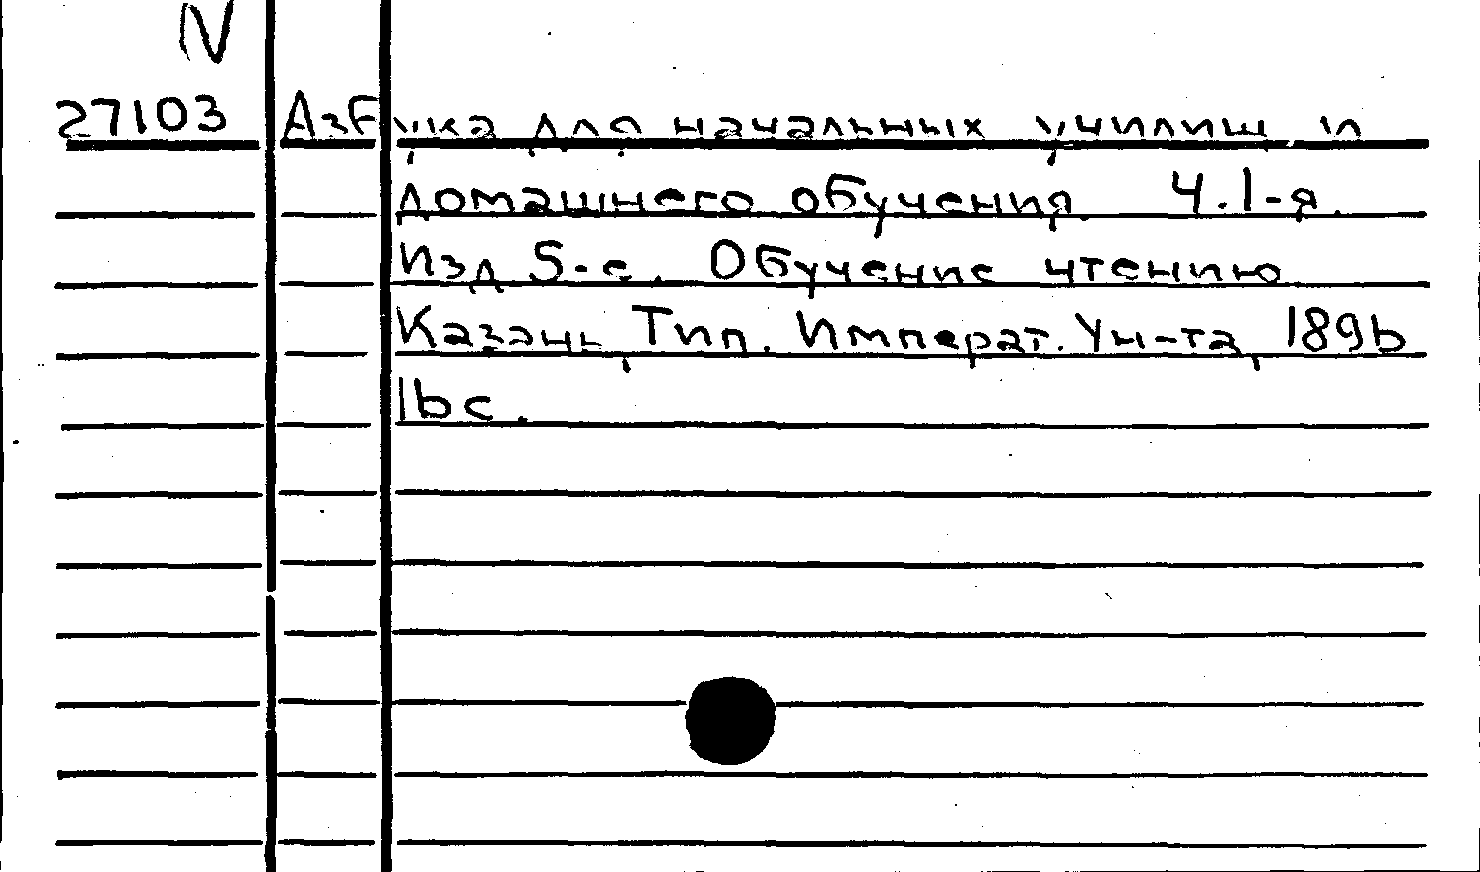 IV
27103 Азбука для начальных училищ и
домашнего обучения. Ч.1-я.
Изд 5-е. Обучение чтению.
Казань, Тип. Императ. Ун-та, 1896
16с.